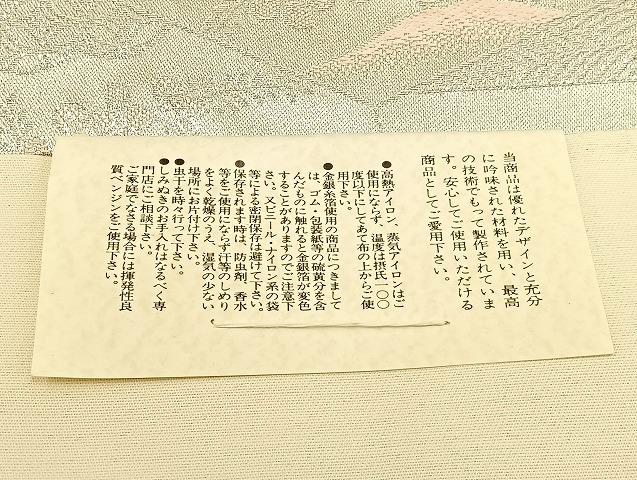 当商品は優れたデザインと充分
に吟味された材料を用い、最高
の技術でもって製作されていま
す。安心してご使用いただける
商品としてご愛用下さい。
●高熱アイロン、蒸気アイロンはご
使用にならず、温度は摂氏一〇〇
度以下にしてあて布の上からご使
用下さい。
●金銀糸箔使用の商品につきまして
は、ゴム・包装紙等の硫黄分を含
んだものに触れると金銀箔が変色
することがありますのでご注意下
さい。又ビニール・ナイロン系の袋
等による密閉保存は避けて下さい。
●保存されます時は、防虫剤、香水
等をご使用にならず汗等のしめり
をよく乾燥のうえ、湿気の少ない
場所にお片付け下さい。
●虫干を時々行って下さい。
●しみぬきのお手入れはなるべく専
門店にご相談下さい。
ご家庭でなさる場合には揮発性良
質ベンジンをご使用下さい。